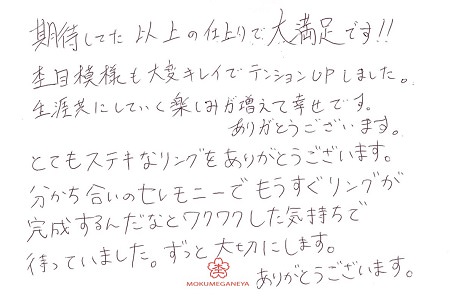 期待してた以上の仕上りで大満足です!!
杢目模様も大変キレイでテンションUPしました。
生涯共にしていく楽しみが増えて幸せです。
ありがとうございます。
とてもステキなリングをありがとうございます。
分かち合いのセレモニーでもうすぐリングが
完成するんだなとワクワクした気持ちで
待っていました。ずっと大切にします。
ありがとうございます。
MOKUMEGANEYA